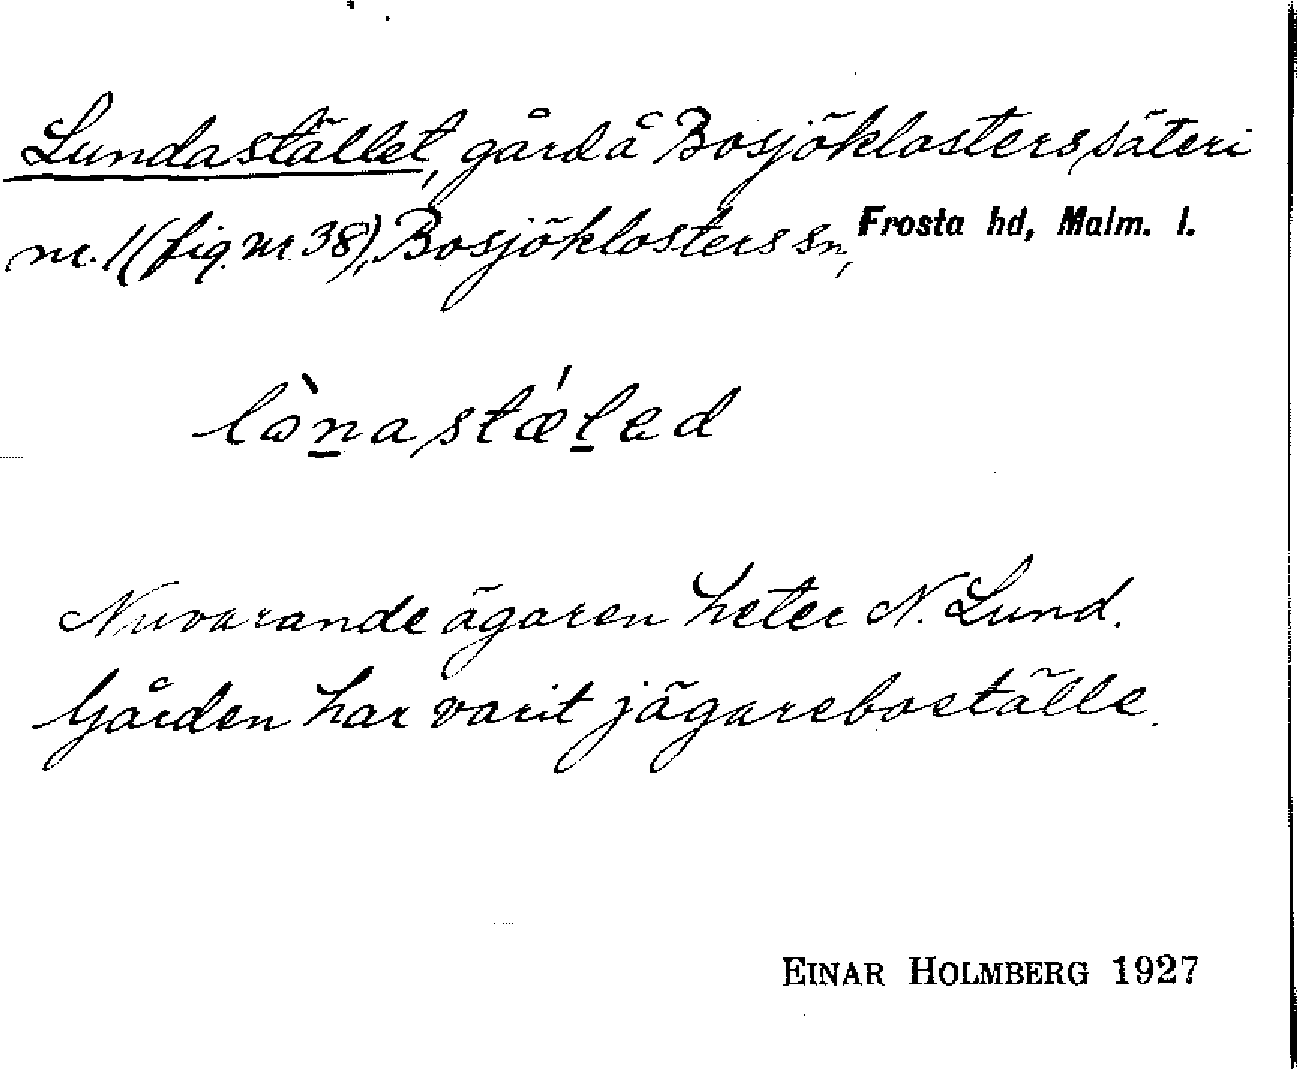 Lundastället, gård å Bosjöklosters säteri
nr. 1 (fig. nr 38), Bosjöklosters sn, Frosta hd, Malm. l.
Nuvarande ägaren heter N. Lund.
Gården har varit jägareboställe.
EINAR HOLMBERG 1927